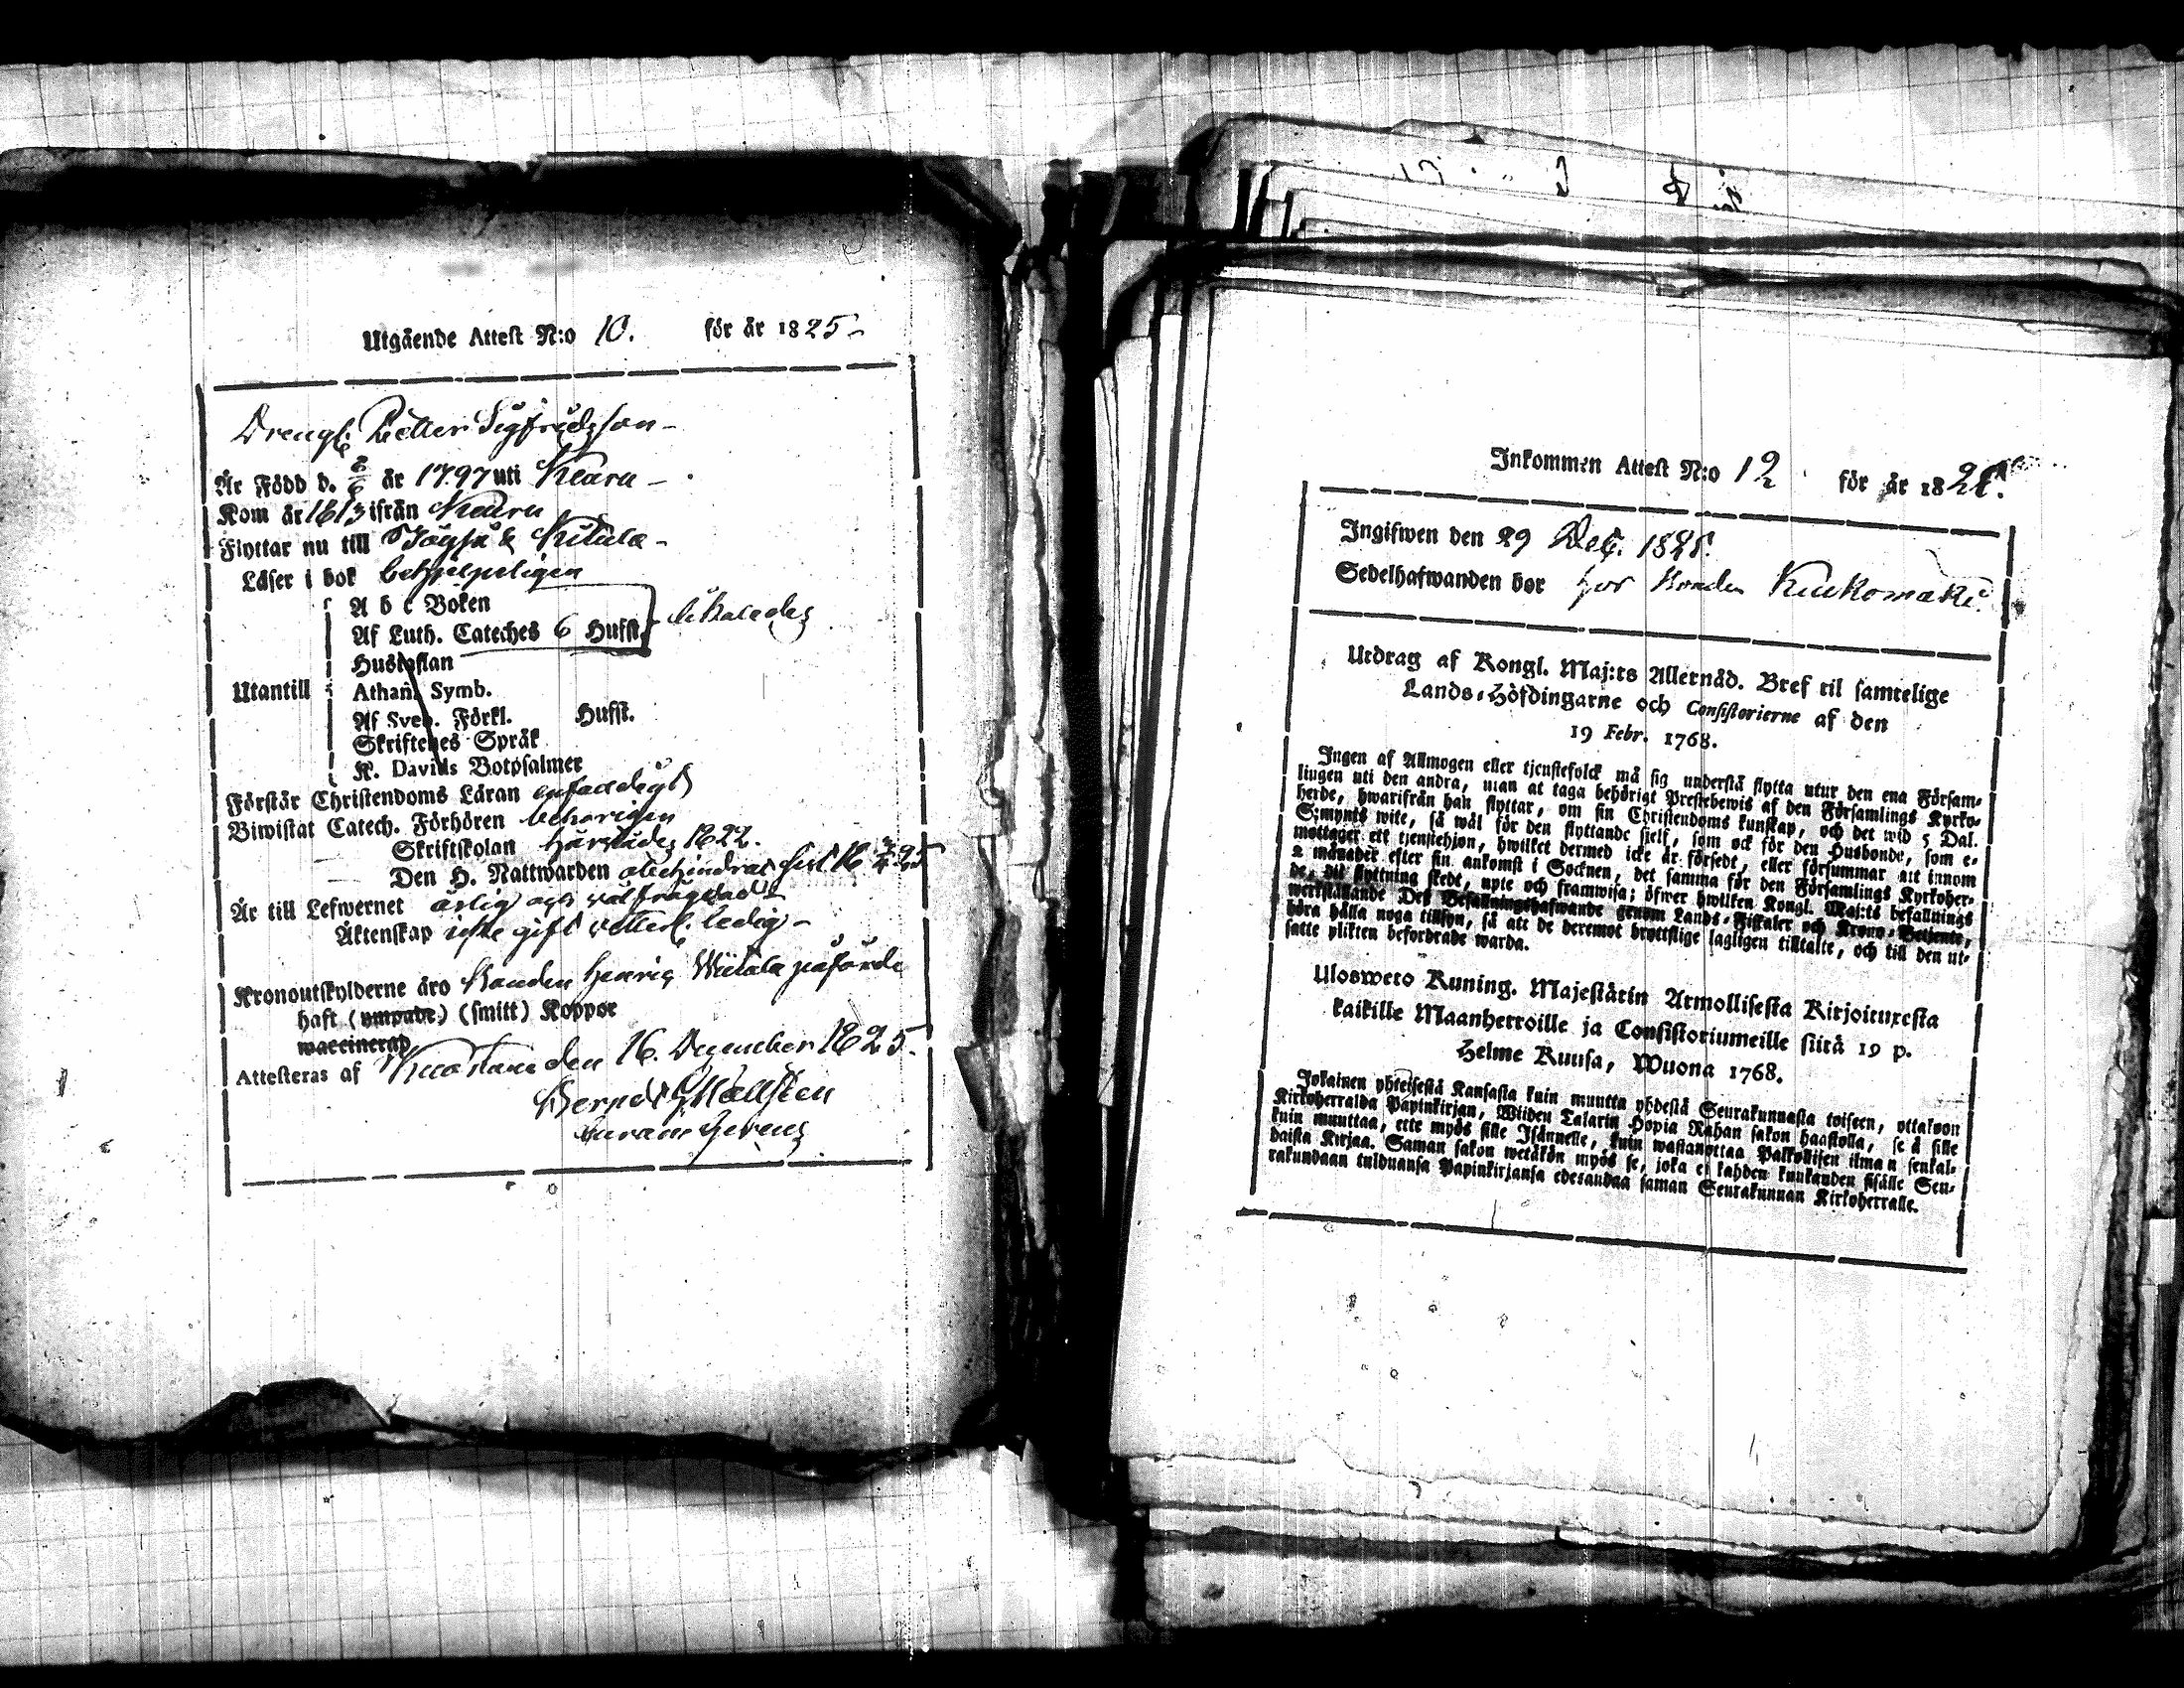 Utgående Attest N:o 10. för år 1825
Drengl. Petter Sigfridsson
Är Född d. 2/6 år 1797 uti
Kom år 1813 ifrån
Flyttar nu till
Läser i bok
A b c Boken
Af Luth. Cateches 6 Hufst. likaledes
Hustaflan
Utantill Athan. Symb.
Af Sveb. Förkl. Hufst.
Skriftenes Språk
K. Davids Botpsalmer
Förstår Christendoms Läran enfaldigt
Biwistat Catech. Förhören behörigen
Skriftskolan härstädes 1822.
Den H. Nattwarden obehindrad sist
Är till Lefwernet ärlig och välfrägdad
Äktenskap icke gift vetterl. ledig
Kronoutskylderne äro Bonden Henric påförde
haft (umpade) (smitt) Koppor
waccinerad
Attesteras af den 16. December 1825.
Inkommen Attest N:o 12 för år 182
Ingifwen den 29 Dec. 182
Sedelhafwanden bor hos Bonden Kiukomäki.
Utdrag af Kongl. Maj:ts Allernåd. Bref til samtelige
Lands-Höfdingarne och Consistorierne af den
19 Febr. 1768.
Ingen af Allmogen eller tjenstefolck må sig understå flytta utur den ena Försam-
lingen uti den andra, utan at taga behörigt Prestebewis af den Församlings Kyrko-
herde, hwarifrån han flyttar, om sin Christendoms kunskap, och det wid 5 Dal.
S:mynts wite, så wäl för den flyttande sjelf, som ock för den Husbonde, som e-
mottager ett tjenstehjon, hwilket dermed icke är försedt, eller försummar att innom
2 månader efter sin ankomst i Socknen, det samma för den Församlings Kyrkoher-
de, dit flyttning skedt, upte och framwisa; öfwer hwilken Kongl. Maj:ts befallnings
werkställande Des Befallningshafwande genom Lands-Fiskaler och Krono-Betjente,
böra hålla noga tillsyn, så att de deremot brottslige lagligen tilltalte, och till den ut-
satte plikten befordrade warda.
Ulosweto Kuning. Majestätin Armollisesta Kirjoituxesta
kaikille Maanherroille ja Consistoriumeille siitä 19 p.
Helme Kuusa, Wuona 1768.
Jokainen yhteisestä Kansasta kuin muutta yhdestä Seurakunnasta toiseen, ottakoon
Kirkoherralda Papinkirjan, Wiiden Talarin Hopia Rahan sakon haastolla, se å sille
kuin muuttaa, ette myös sille Isännelle, kuin wastanottaa Palkollisen ilman senkal-
daista Kirjaa. Saman sakon wetäkön myös se, joka ei kahden kuukauden sisälle Seu-
rakundaan tulduansa Papinkirjansa edesandaa saman Seurakunnan Kirkoherralle.